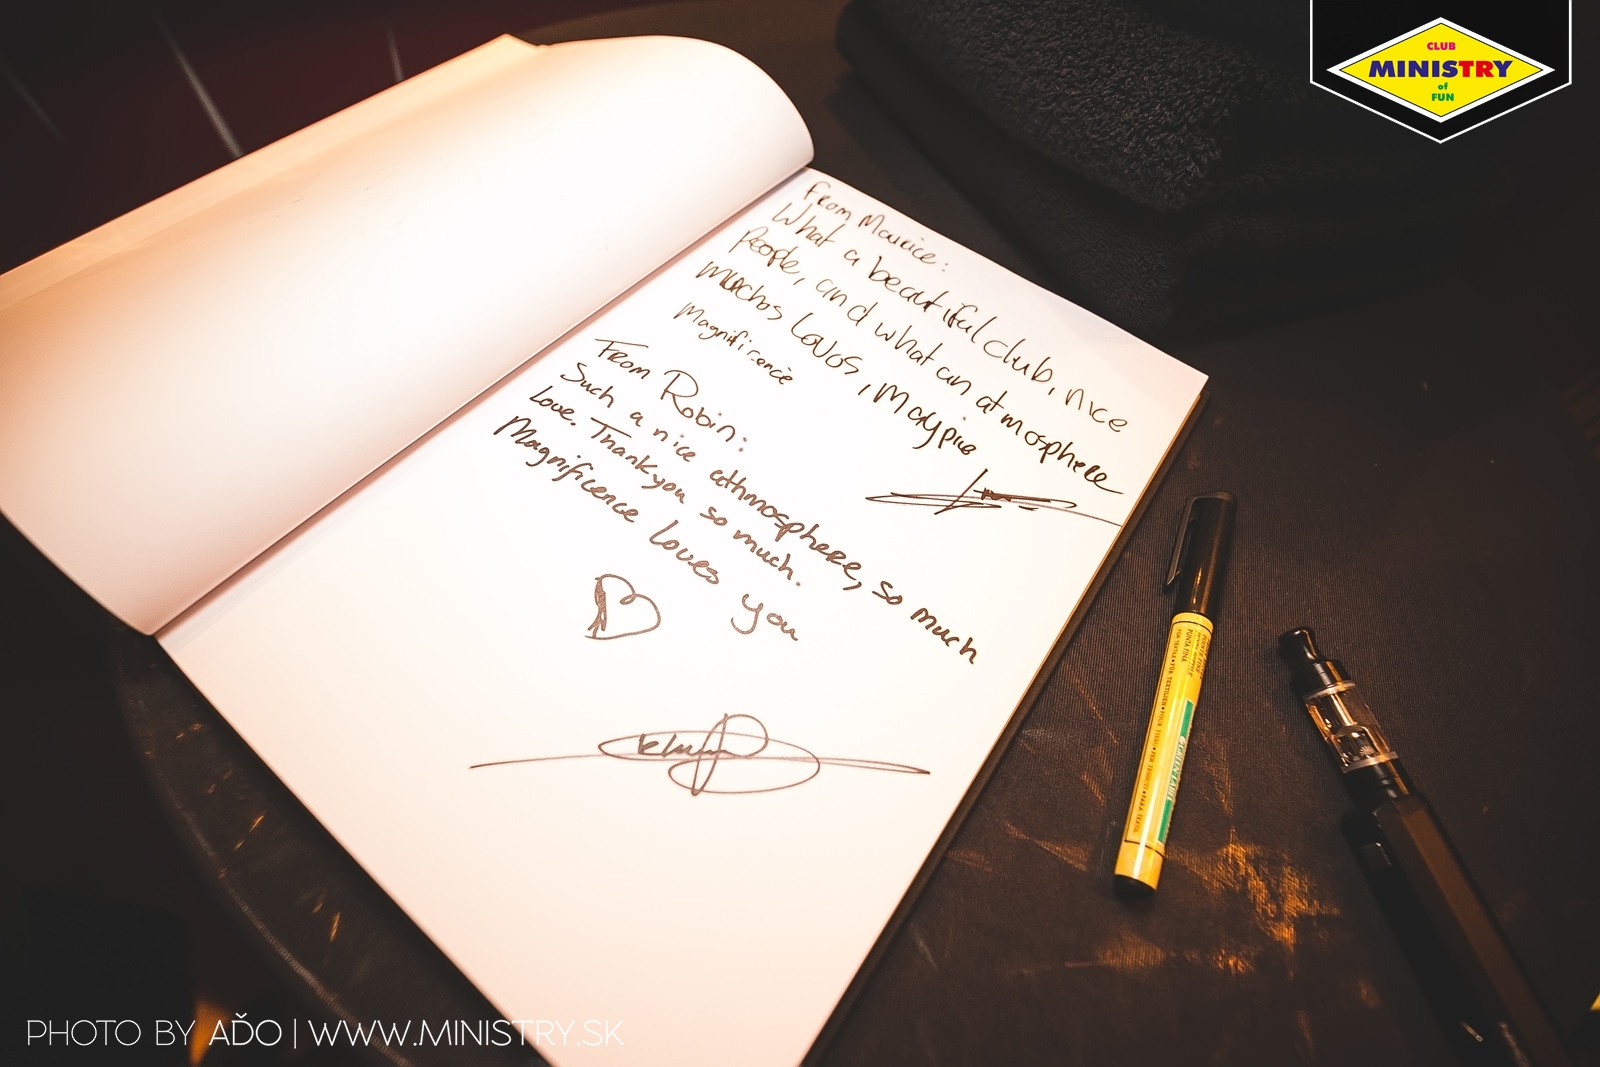 CLUB
MINISTRY
of
FUN
From Maurice:
What a beautiful club, nice
People, and what an atmosphere
muchos Lovos,
Magnificence
From Robin:
Such a nice athmosphere, so much
Love. Thank you so much.
Magnificence Loves you
PUNTA FINA
PHOTO BY AĎO | WWW.MINISTRY.SK